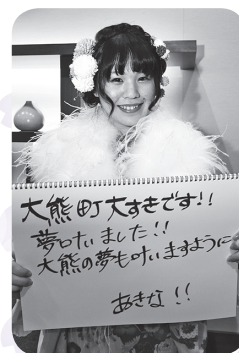 大熊町大すきです!!
夢叶いました!!
大熊の夢も叶いますように
あきな!!